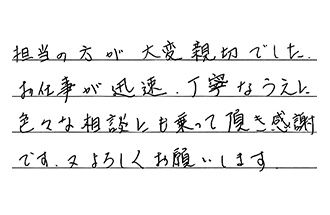 担当の方が大変親切でした.
お仕事が迅速.丁寧なうえに
色々な相談にも乗って頂き感謝
です.又よろしくお願いします.